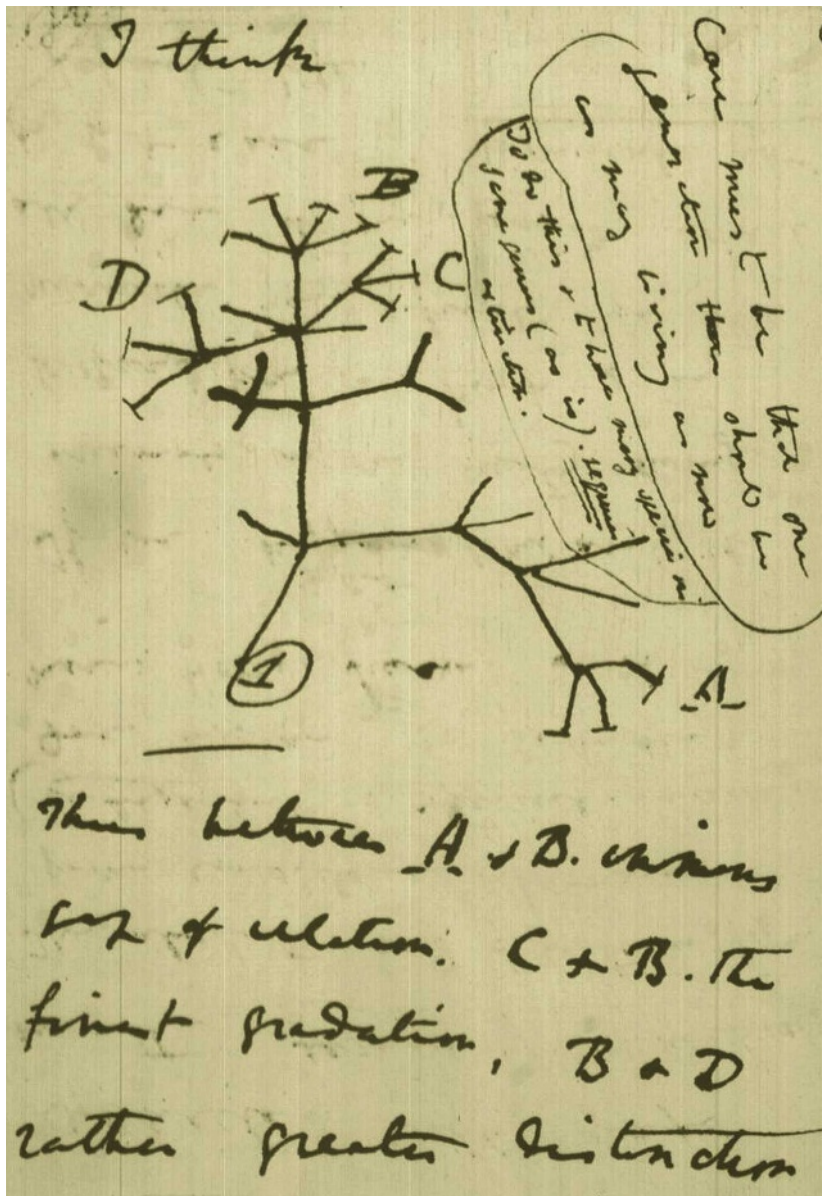 I think
Case must be that one
generation then should be
as many living as now
To do this & to have many species in
same genus (as is). requires
extinction.
B
D
C
1
A
Thus between A & B. immens
gap of relation. C & B. the
finest gradation, B & D
rather greater distinction